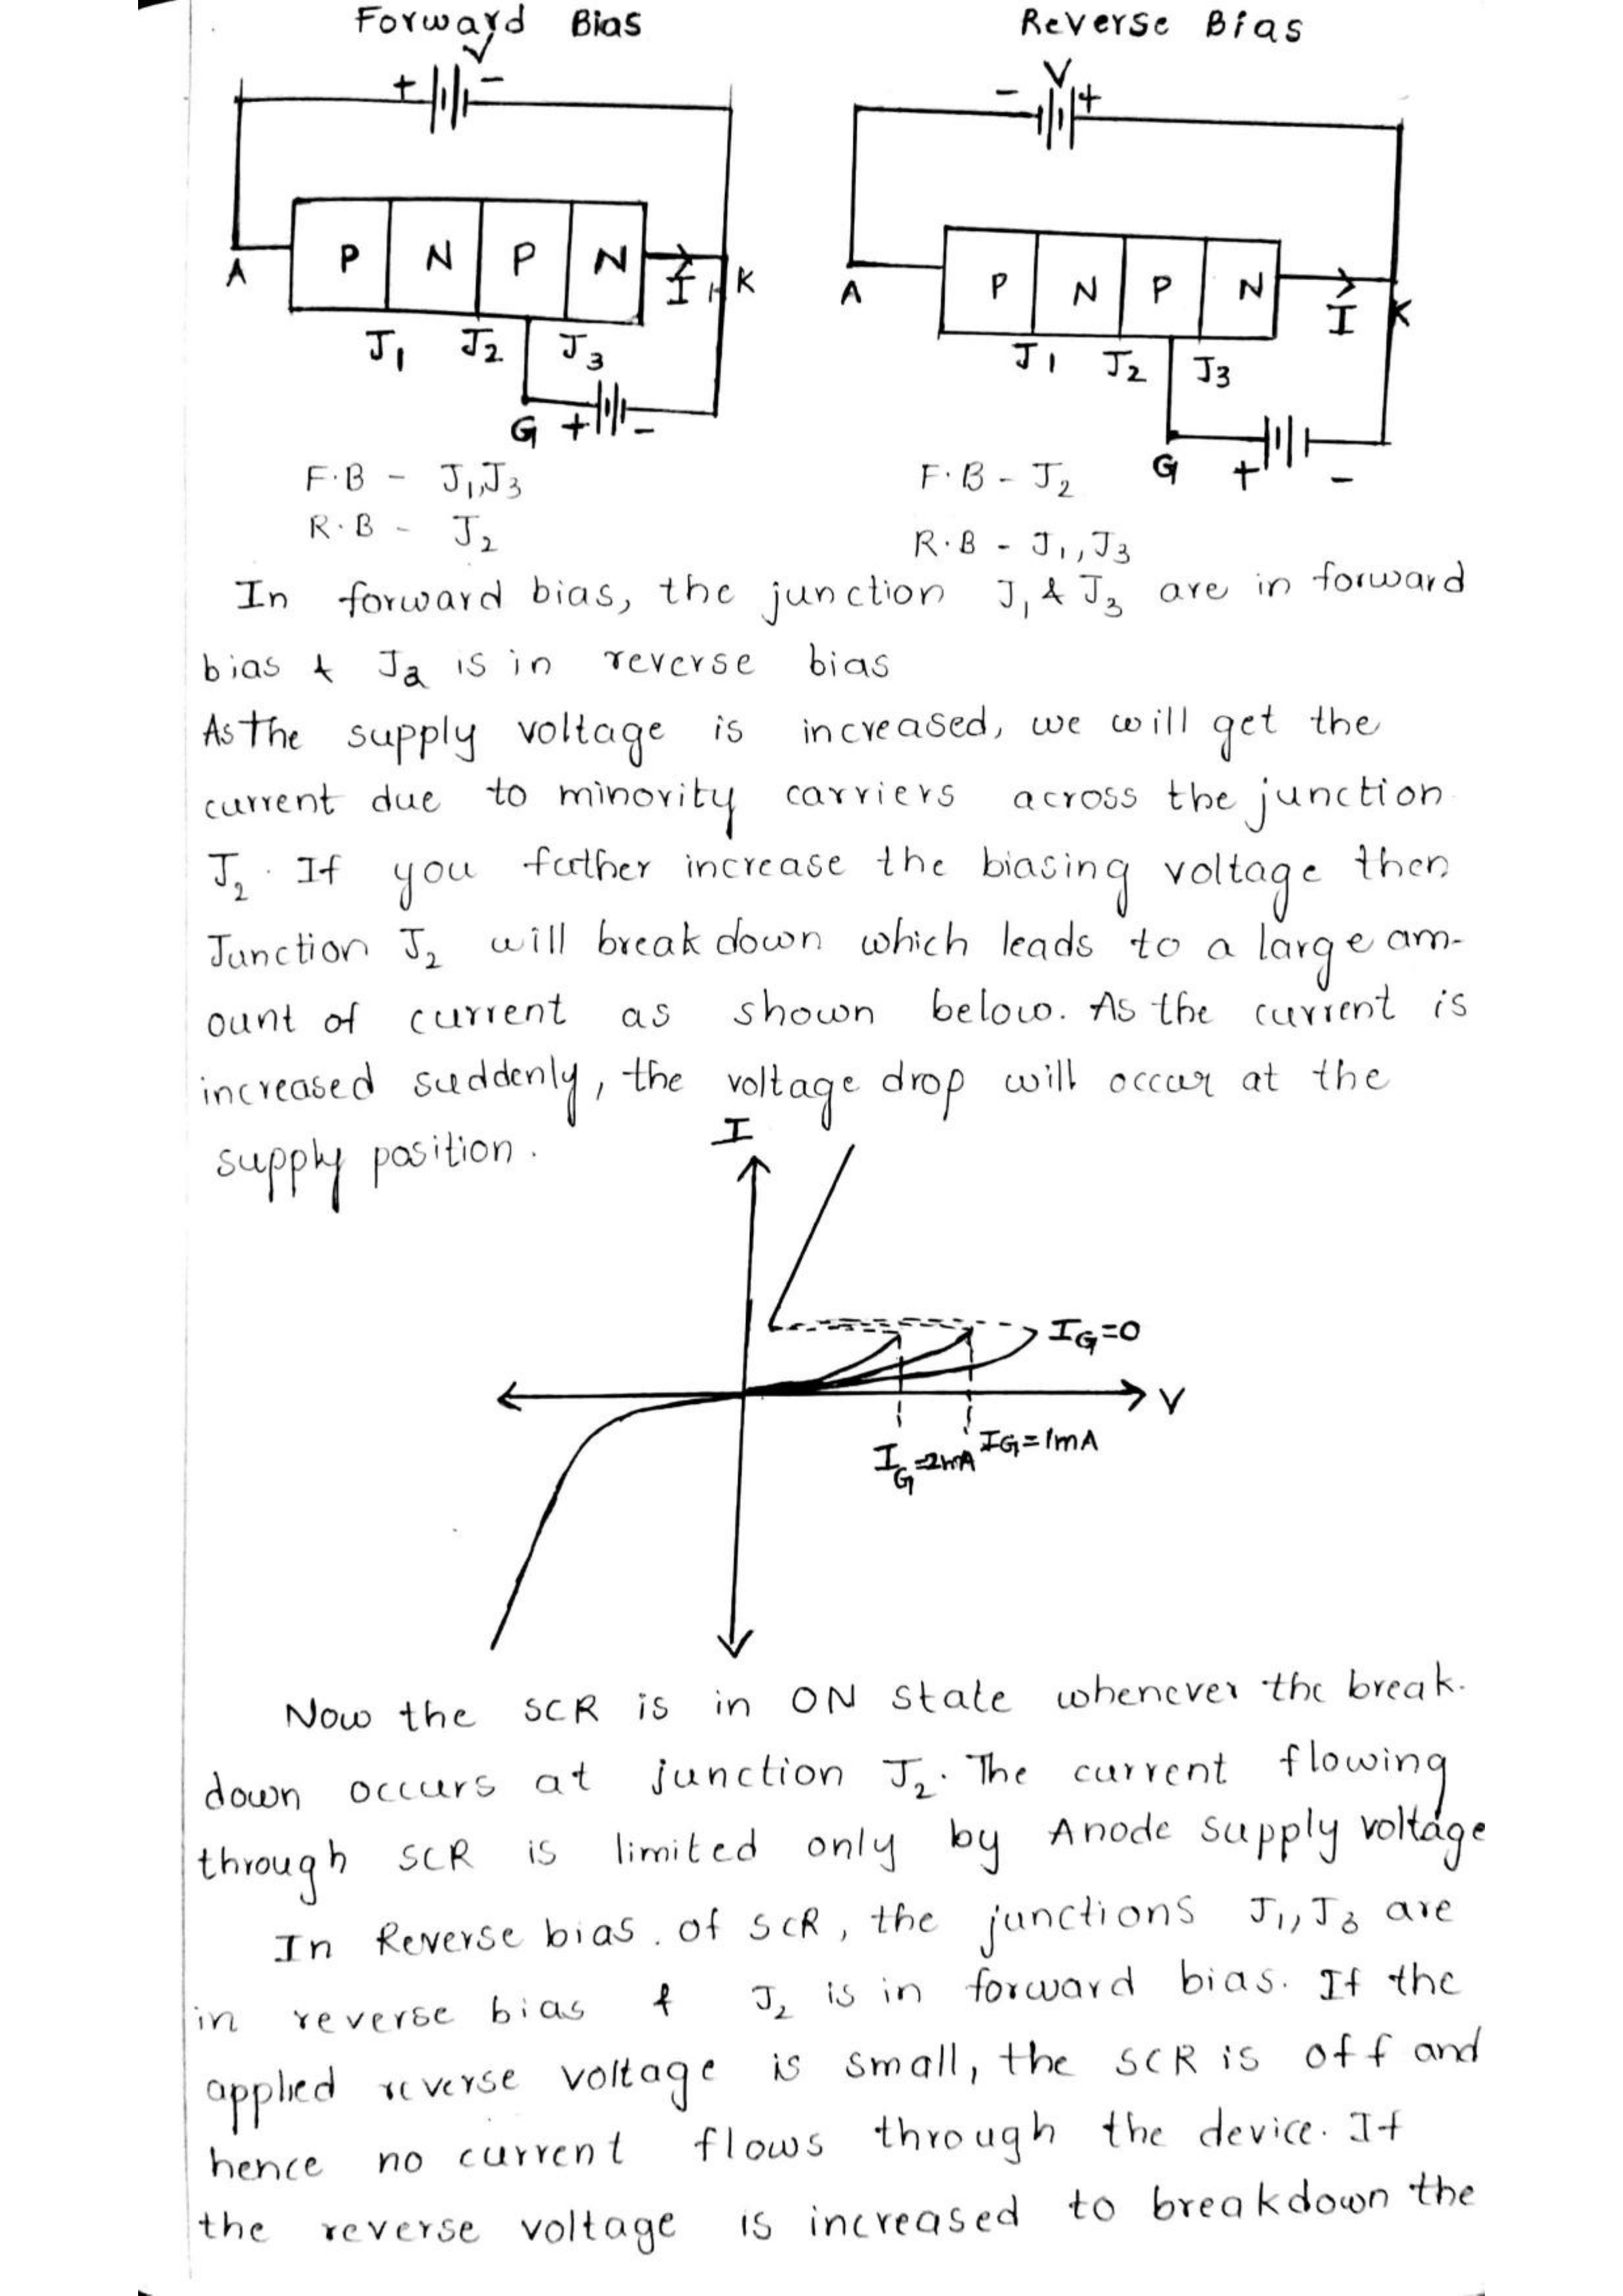 Forward Bias
Reverse Bias
V
+ -
- V +
A P N P N I K
A P N P N I K
J1 J2 J3
J1 J2 J3
G + -
G + -
F.B - J1,J3
R.B - J2
F.B - J2
R.B - J1,J3
In forward bias, the junction J1 & J3 are in forward
bias & J2 is in reverse bias
As the supply voltage is increased, we will get the
current due to minority carriers across the junction
J2. If you futher increase the biasing voltage then
Junction J2 will break down which leads to a large am-
ount of current as shown below. As the current is
increased suddenly, the voltage drop will occur at the
supply position.
I
IG=0
V
IG=2mA IG=1mA
Now the SCR is in ON state whenever the break-
down occurs at junction J2. The current flowing
through SCR is limited only by Anode supply voltage
In Reverse bias. of SCR, the junctions J1, J3 are
in reverse bias & J2 is in forward bias. If the
applied reverse voltage is small, the SCR is off and
hence no current flows through the device. If
the reverse voltage is increased to breakdown the